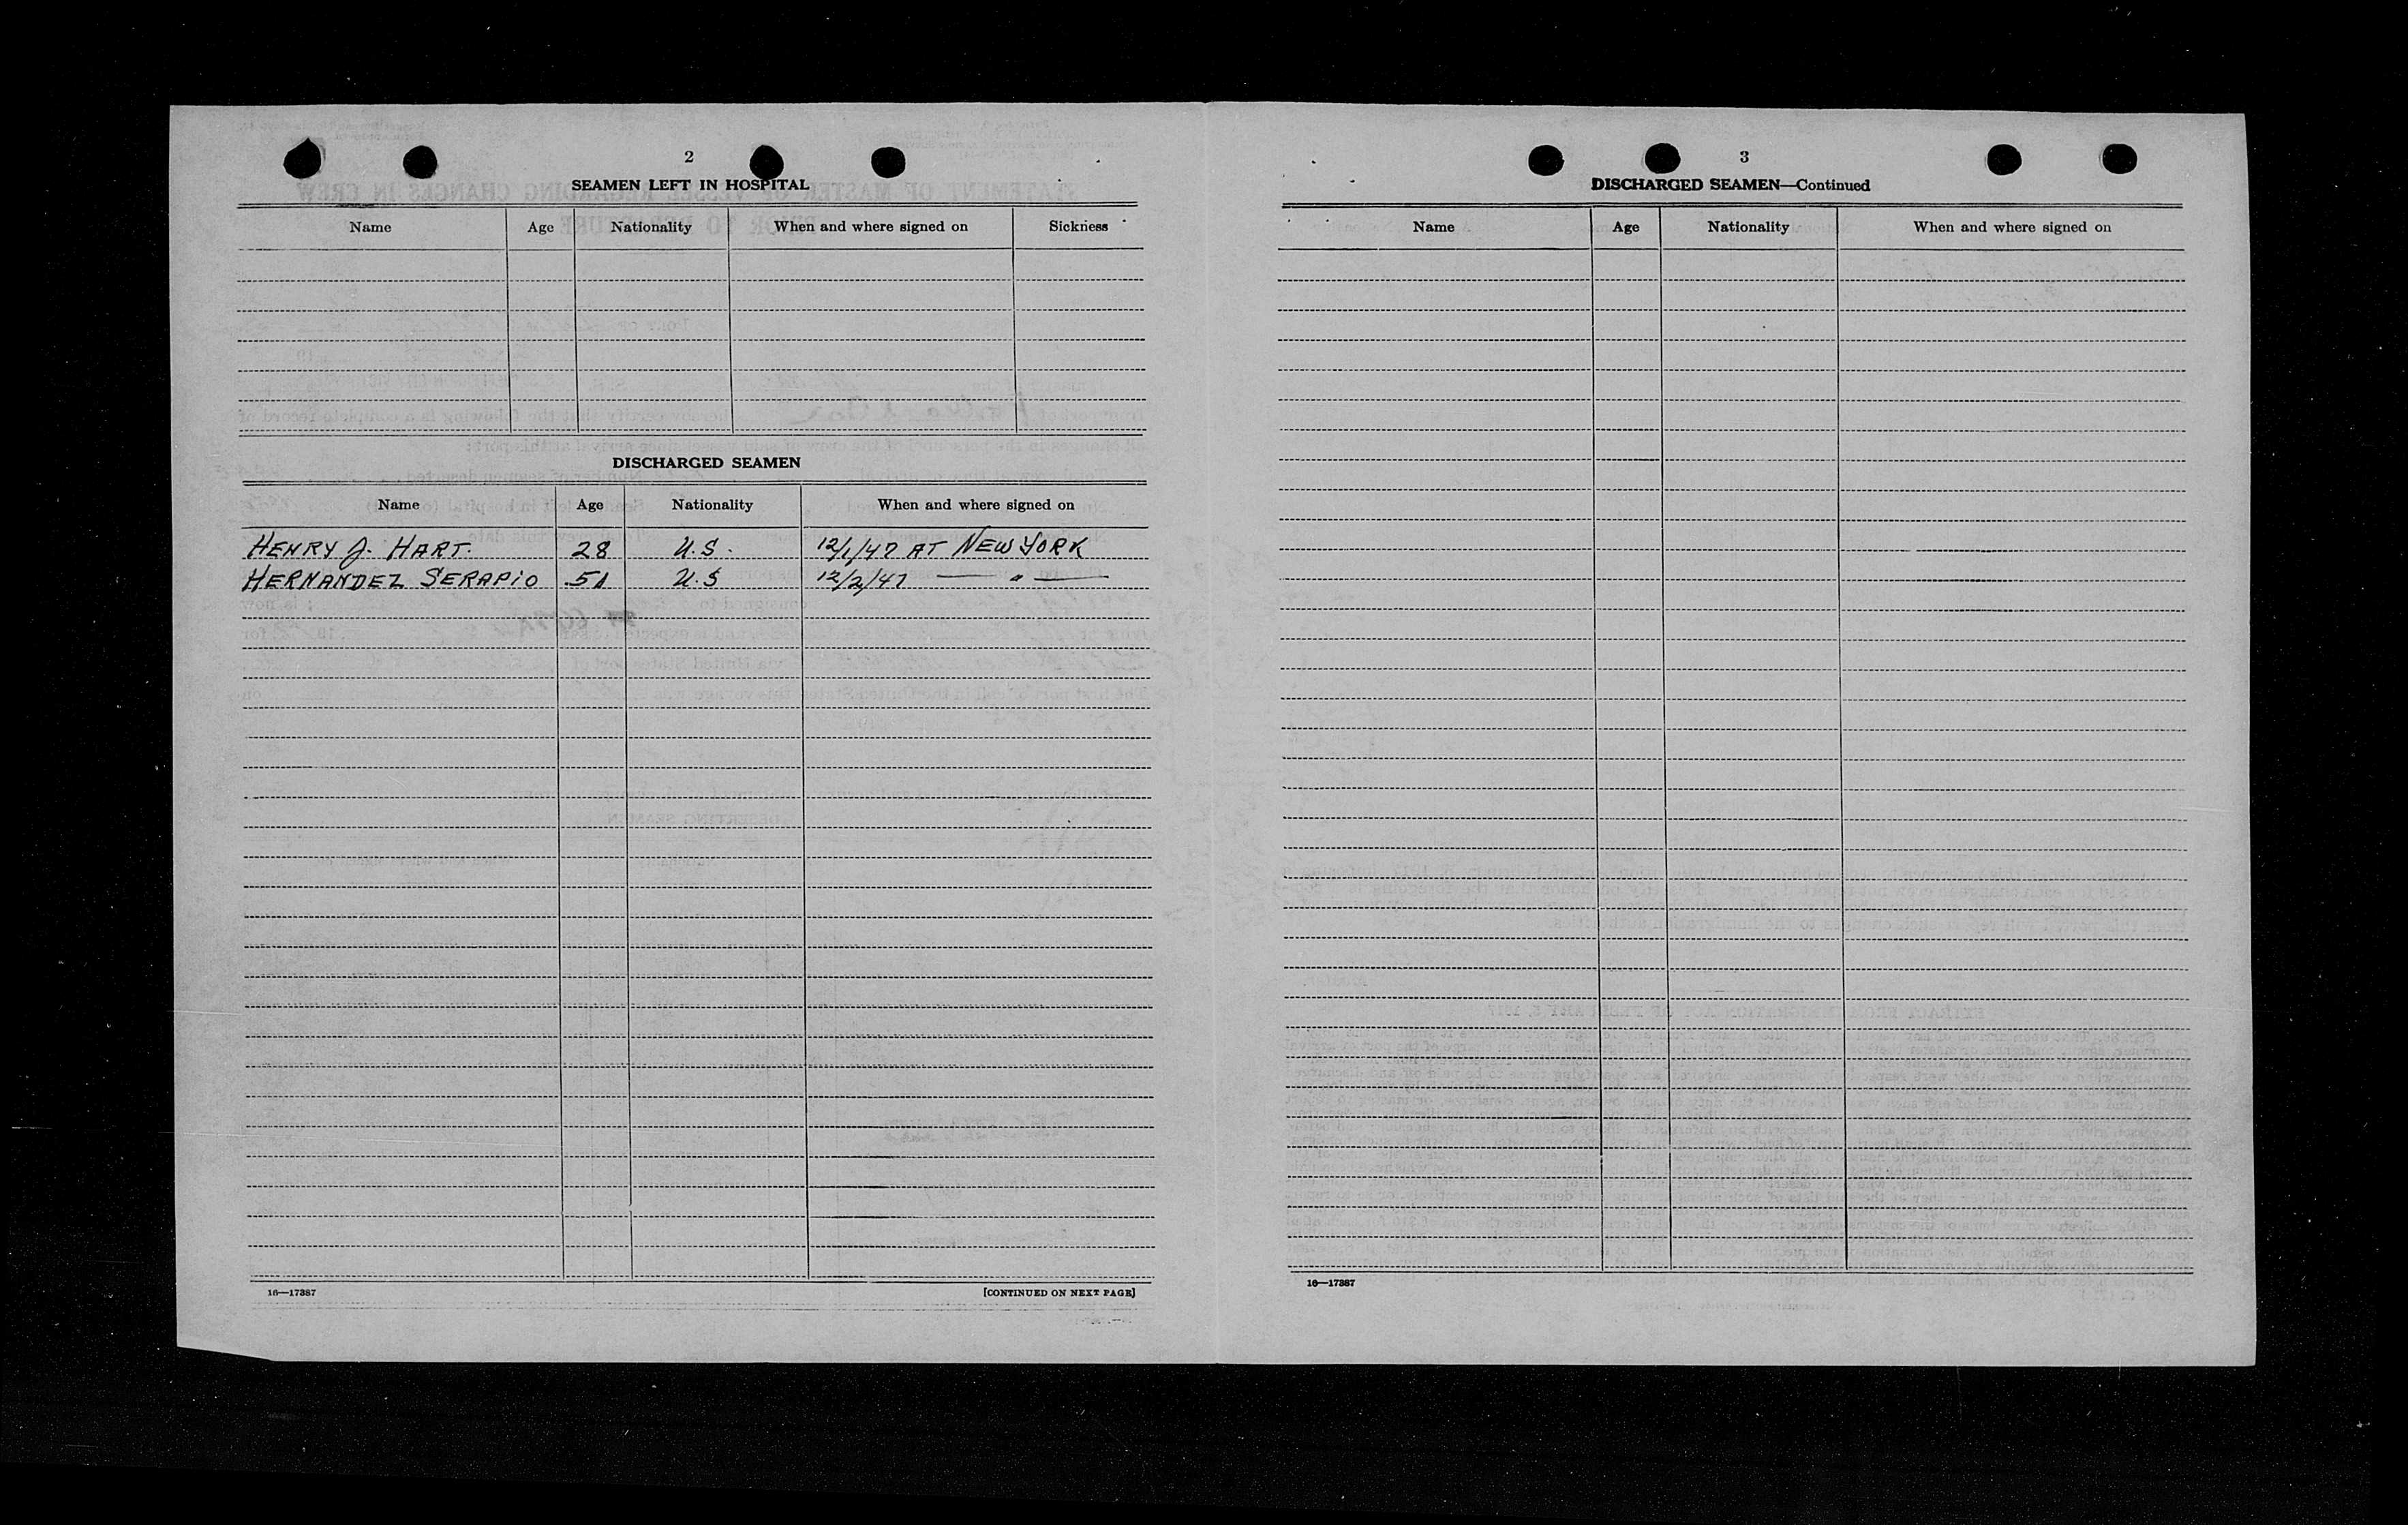 2
SEAMEN LEFT IN HOSPITAL
Name Age Nationality When and where signed on Sickness
DISCHARGED SEAMEN
Name Age Nationality When and where signed on
HENRY J. HART. 28 U.S. 12/1/47 AT NEW YORK
HERNANDEZ SERAPIO 51 U.S 12/2/47 — " —
16—17387 [CONTINUED ON NEXT PAGE]
3
DISCHARGED SEAMEN—Continued
Name Age Nationality When and where signed on
16—17387